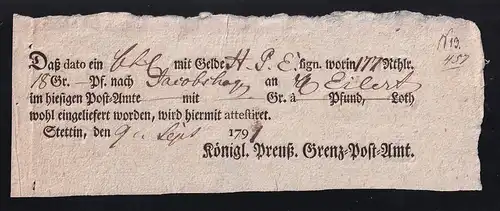 № 19.
457
Daß dato ein mit Gelde H. P. E. sign. worin 177 Rthlr.
18 Gr. — Pf. nach Jacobshag an Eilert
im hiesigen Post-Amte — mit — Gr. à — Pfund, — Loth
wohl eingeliefert worden, wird hiermit attestiret.
Stettin, den 9 Sept 1791
Königl. Preuß. Grenz-Post-Amt.